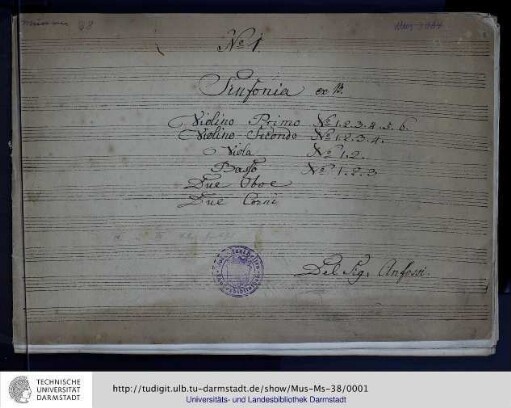 38
Mus 2664
No 1
Sinfonia ex B.
Violino Primo No 1. 2. 3. 4. 5. 6.
Violino Secondo No 1. 2. 3. 4.
Viola No 1. 2.
Basso No 1. 2. 3
Due Oboe
Due Corni
Del Sig. Anfossi.
TECHNISCHE
UNIVERSITÄT
DARMSTADT
http://tudigit.ulb.tu-darmstadt.de/show/Mus-Ms-38/0001
Universitäts- und Landesbibliothek Darmstadt